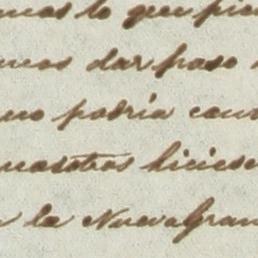 mos lo que pie
mos dar paso
no podria con
nosotros hiciese
la Nueva Gran